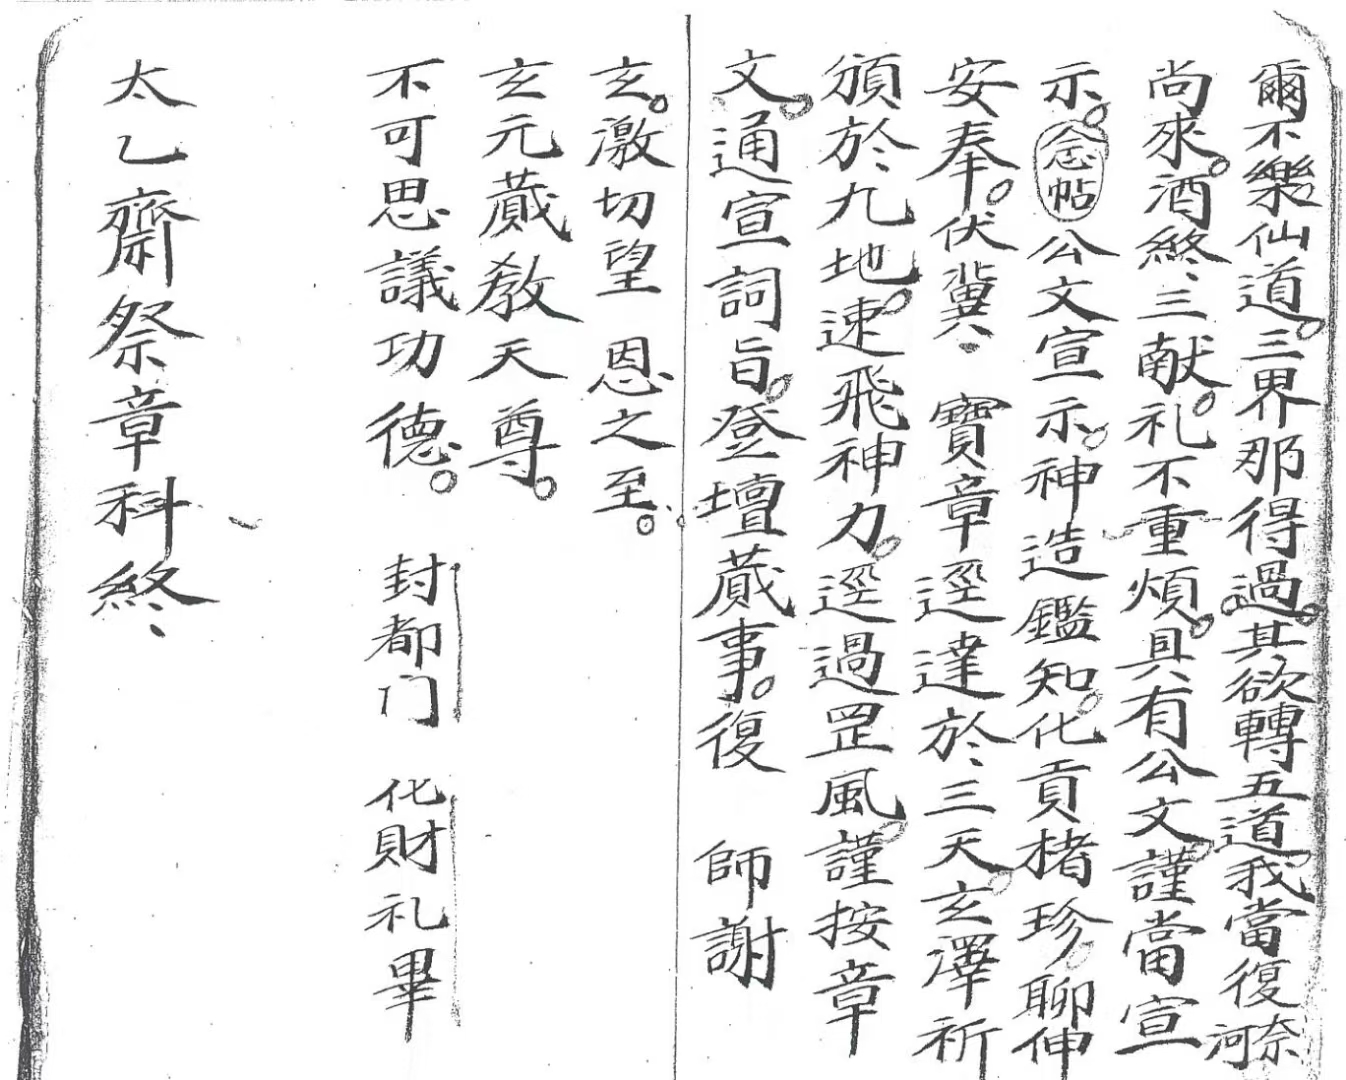 爾不樂仙道。三界那得過。其欲轉五道。我當復奈河
尚來。酒終三献。礼不重煩。具有公文。謹當宣
示。念帖公文宣示。神造鑑知。化貢楮珍。聊伸
安奉。伏冀 寶章逕達於三天。玄澤祈
頒於九地。速飛神力。逕過罡風。謹按章
文。通宣詞旨。登壇蕆事。復 師謝
玄。激切望 恩之至。
玄元蕆教天尊。
不可思議功德。 封都门 化財礼畢
太乙齋祭章科終